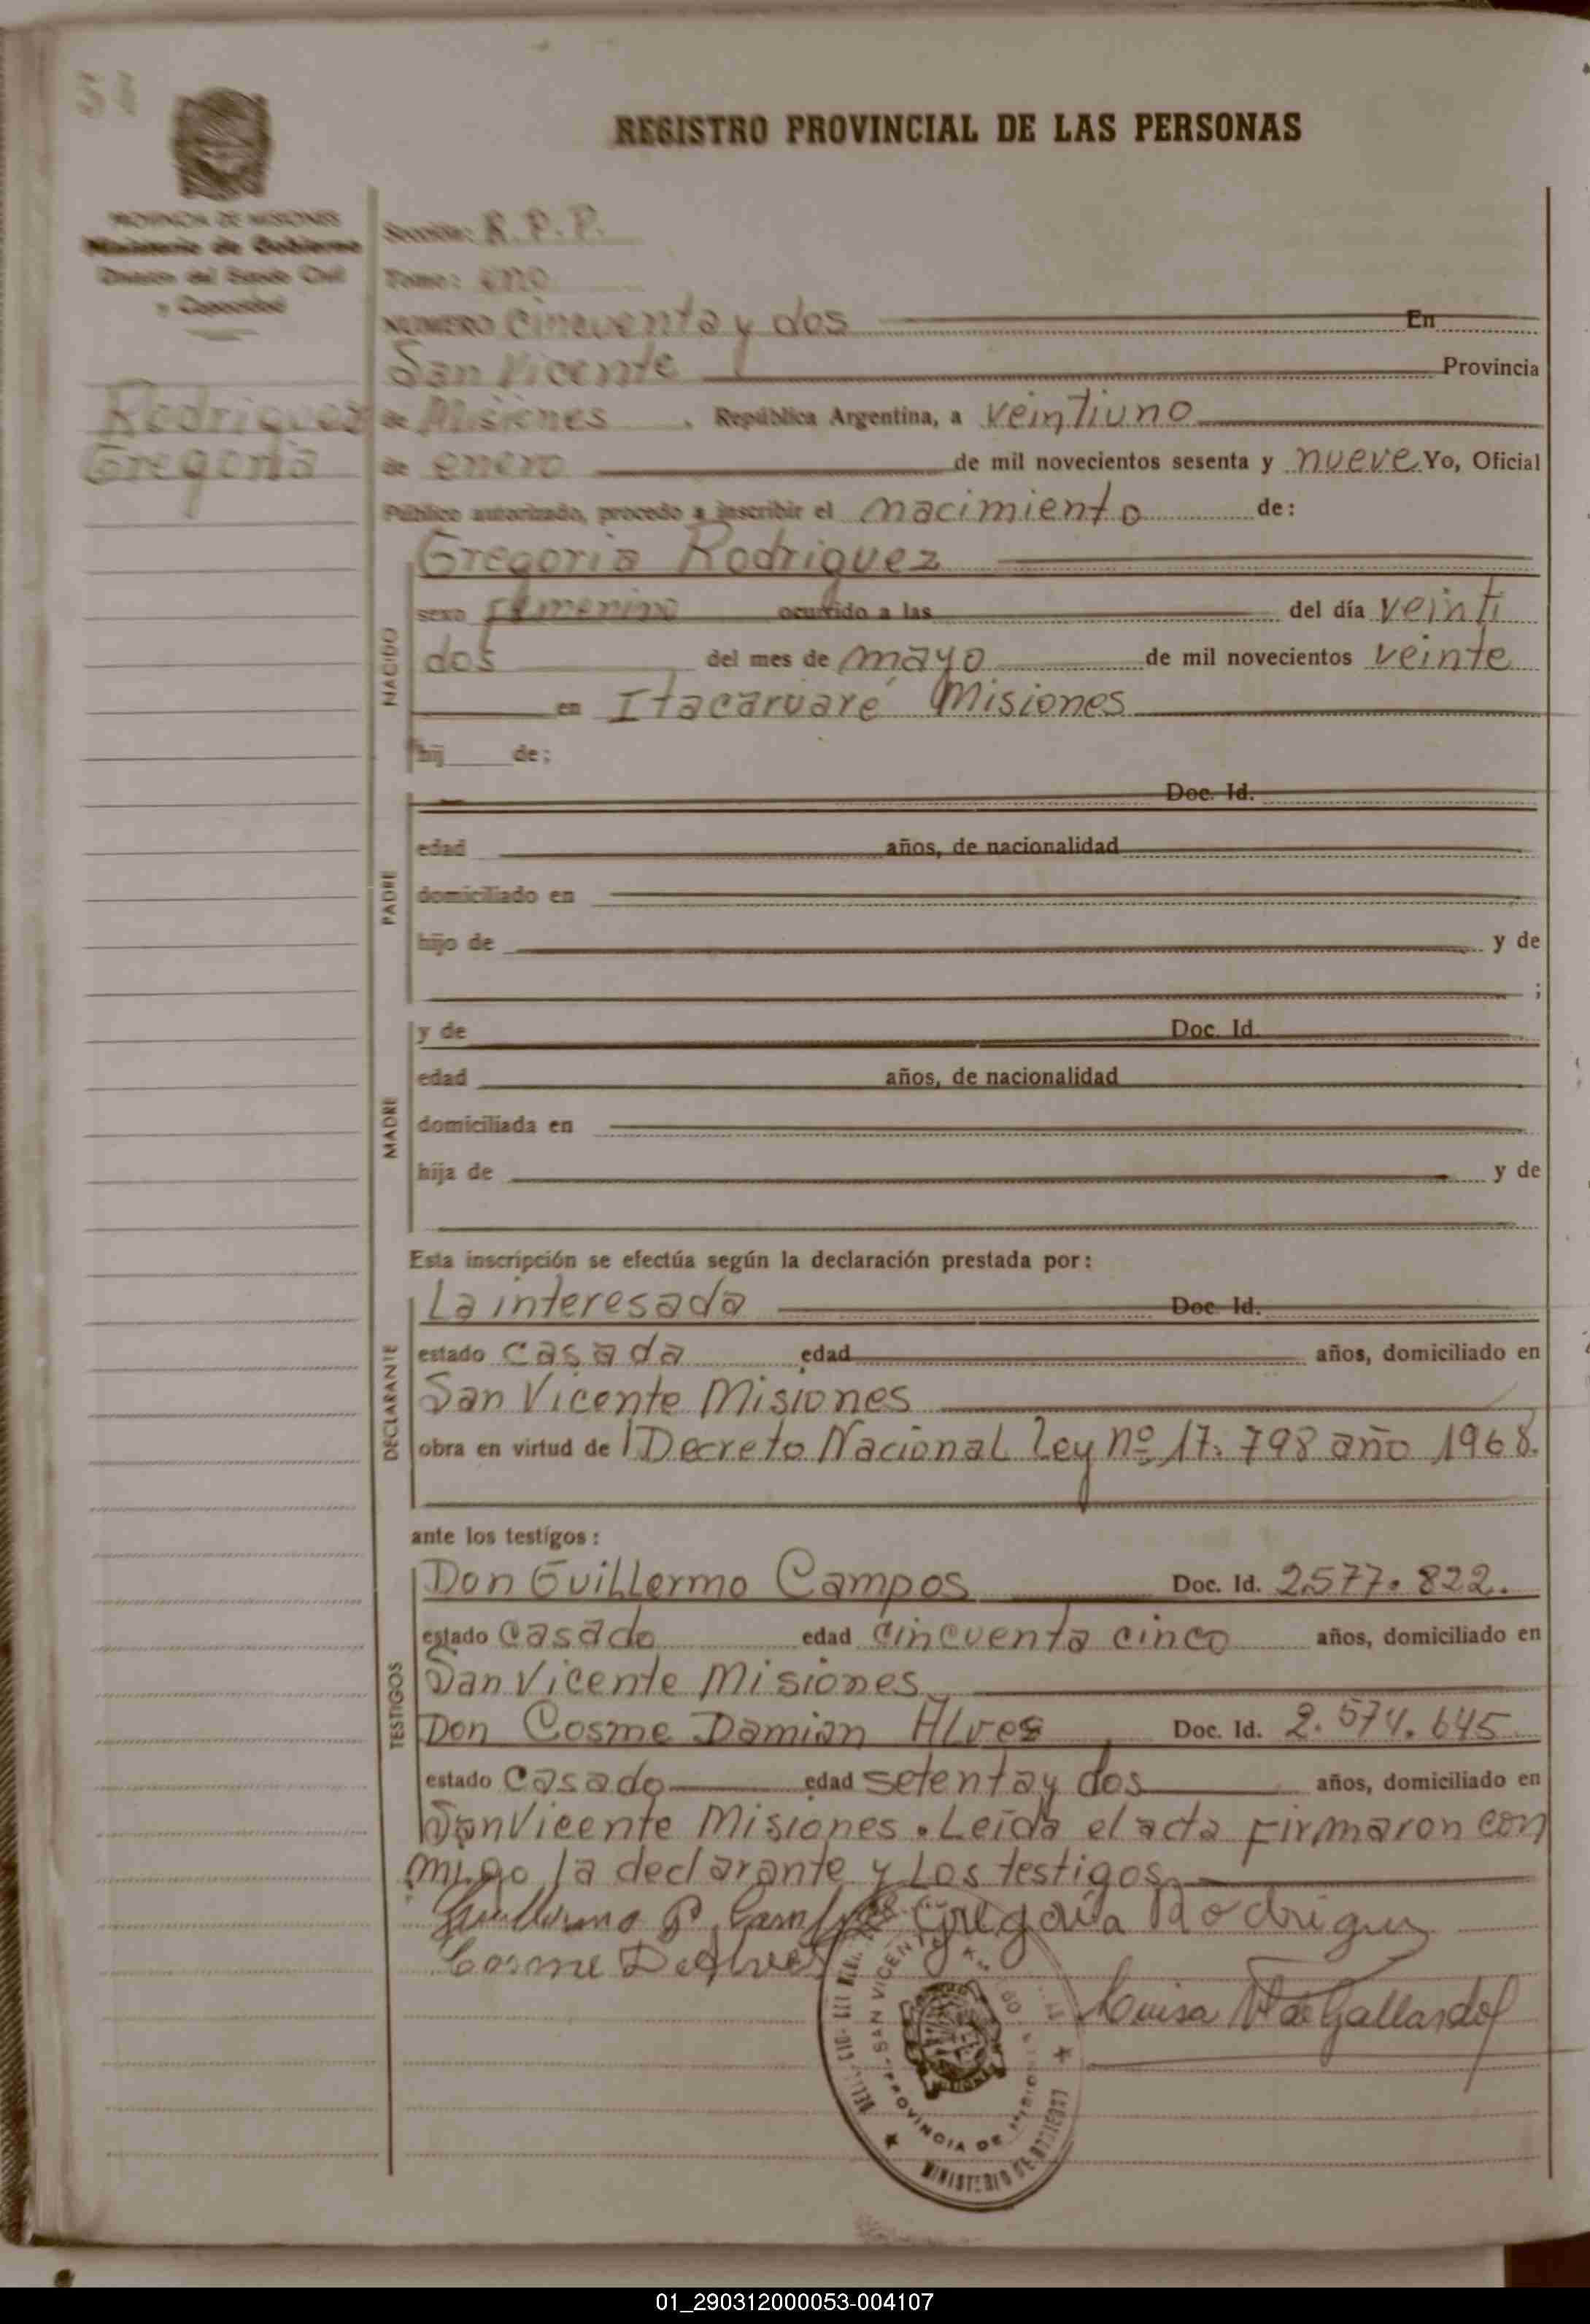 REGISTRO PROVINCIAL DE LAS PERSONAS
PROVINCIA DE MISIONES
Ministerio de Gobierno
Dirección del Estado Civil
y Capacidad
Rodriguez
Gregoria
Sección: R. P. P.
Tomo: uno
NUMERO Cincuenta y dos En
San Vicente Provincia
de Misiones , República Argentina, a veintiuno
de enero de mil novecientos sesenta y nueve Yo, Oficial
Público autorizado, procedo a inscribir el nacimiento de:
Gregoria Rodriguez
NACIDO
sexo femenino ocurrido a las del día veinti
dos del mes de mayo de mil novecientos veinte
en Itacaruaré Misiones
hij de;
PADRE
Doc. Id.
edad años, de nacionalidad
domiciliado en
hijo de y de
;
MADRE
y de Doc. Id.
edad años, de nacionalidad
domiciliada en
hija de y de
Esta inscripción se efectúa según la declaración prestada por:
DECLARANTE
La interesada Doc. Id.
estado casada edad años, domiciliado en
San Vicente Misiones
obra en virtud de Decreto Nacional Ley nº 17.798 año 1968.
ante los testigos:
TESTIGOS
Don Guillermo Campos Doc. Id. 2.577.822.
estado casado edad cincuenta cinco años, domiciliado en
San Vicente Misiones
Don Cosme Damian Alves Doc. Id. 2.574.645
estado casado edad setenta y dos años, domiciliado en
San Vicente Misiones. Leida el acta firmaron con
migo la declarante y los testigos.
Guillermo P. Campos Gregoria Rodriguez
Cosme D Alves
Luisa de Gallardo
SAN VICENTE
PROVINCIA DE MISIONES
MINISTERIO DE GOBIERNO
01_290312000053-004107